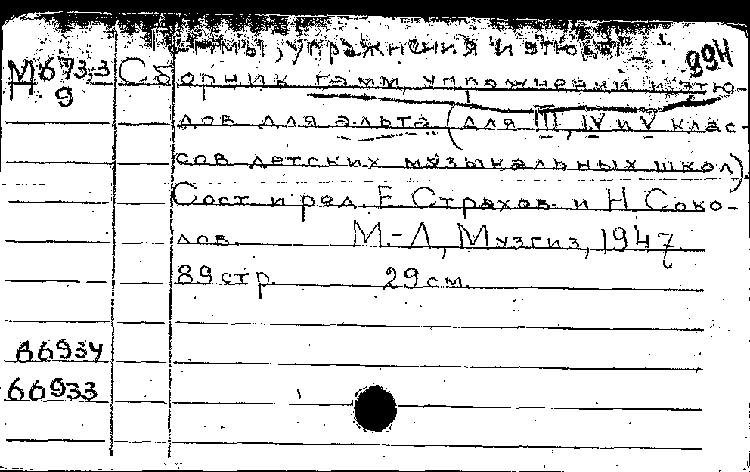 Гаммы, упражнения и этюды
994
М673-3
9
Сборник гамм, упражнений и этю-
дов для альта (для III, IV и V клас-
сов детских музыкальных школ).
Сост. и ред. Е. Страхов и Н. Соко-
лов. М.-Л, Музгиз, 1947
89 стр. 29 см.
66934
66933